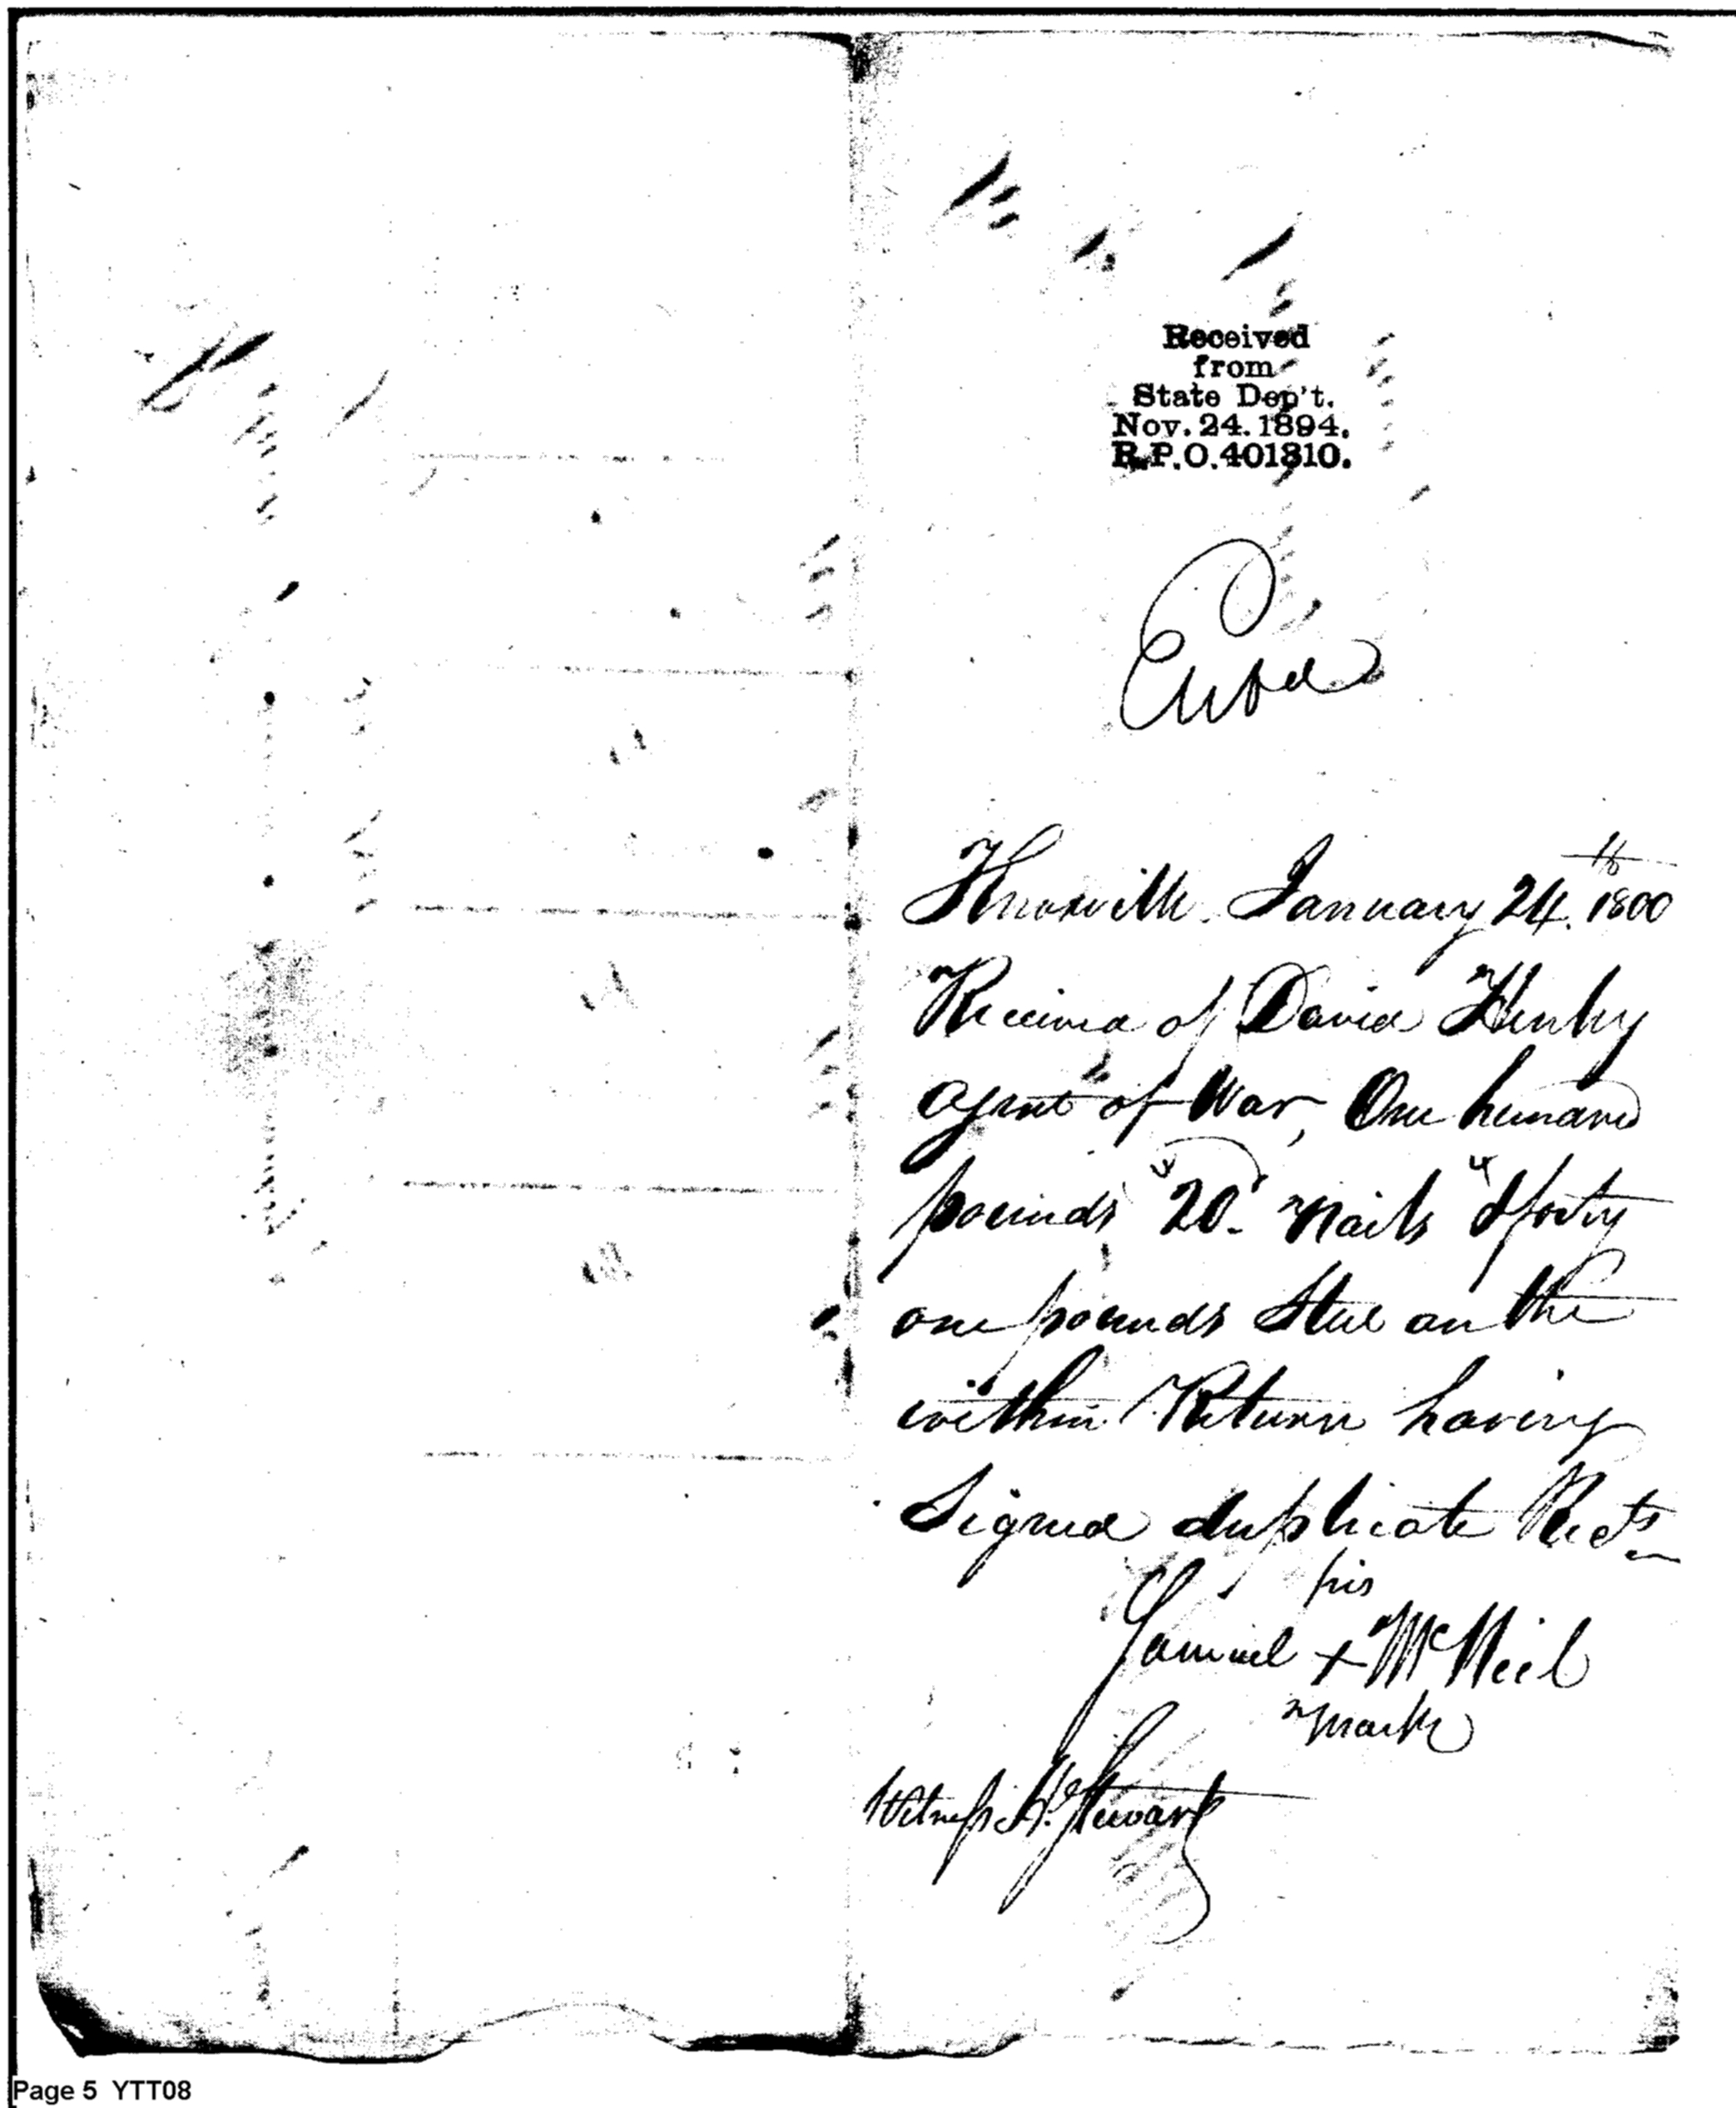 Received
from
State Dep't.
Nov. 24. 1894.
R.P.O. 401310.
Entd
Knoxville January 24th 1800
Received of David Henley
Agent of War, One hundred
pounds 20d Nails & forty
one pounds Steel on the
within Return having
Signed duplicate Rects
his
Samuel + McNeil
mark
Witness Stewart
Page 5 YTT08